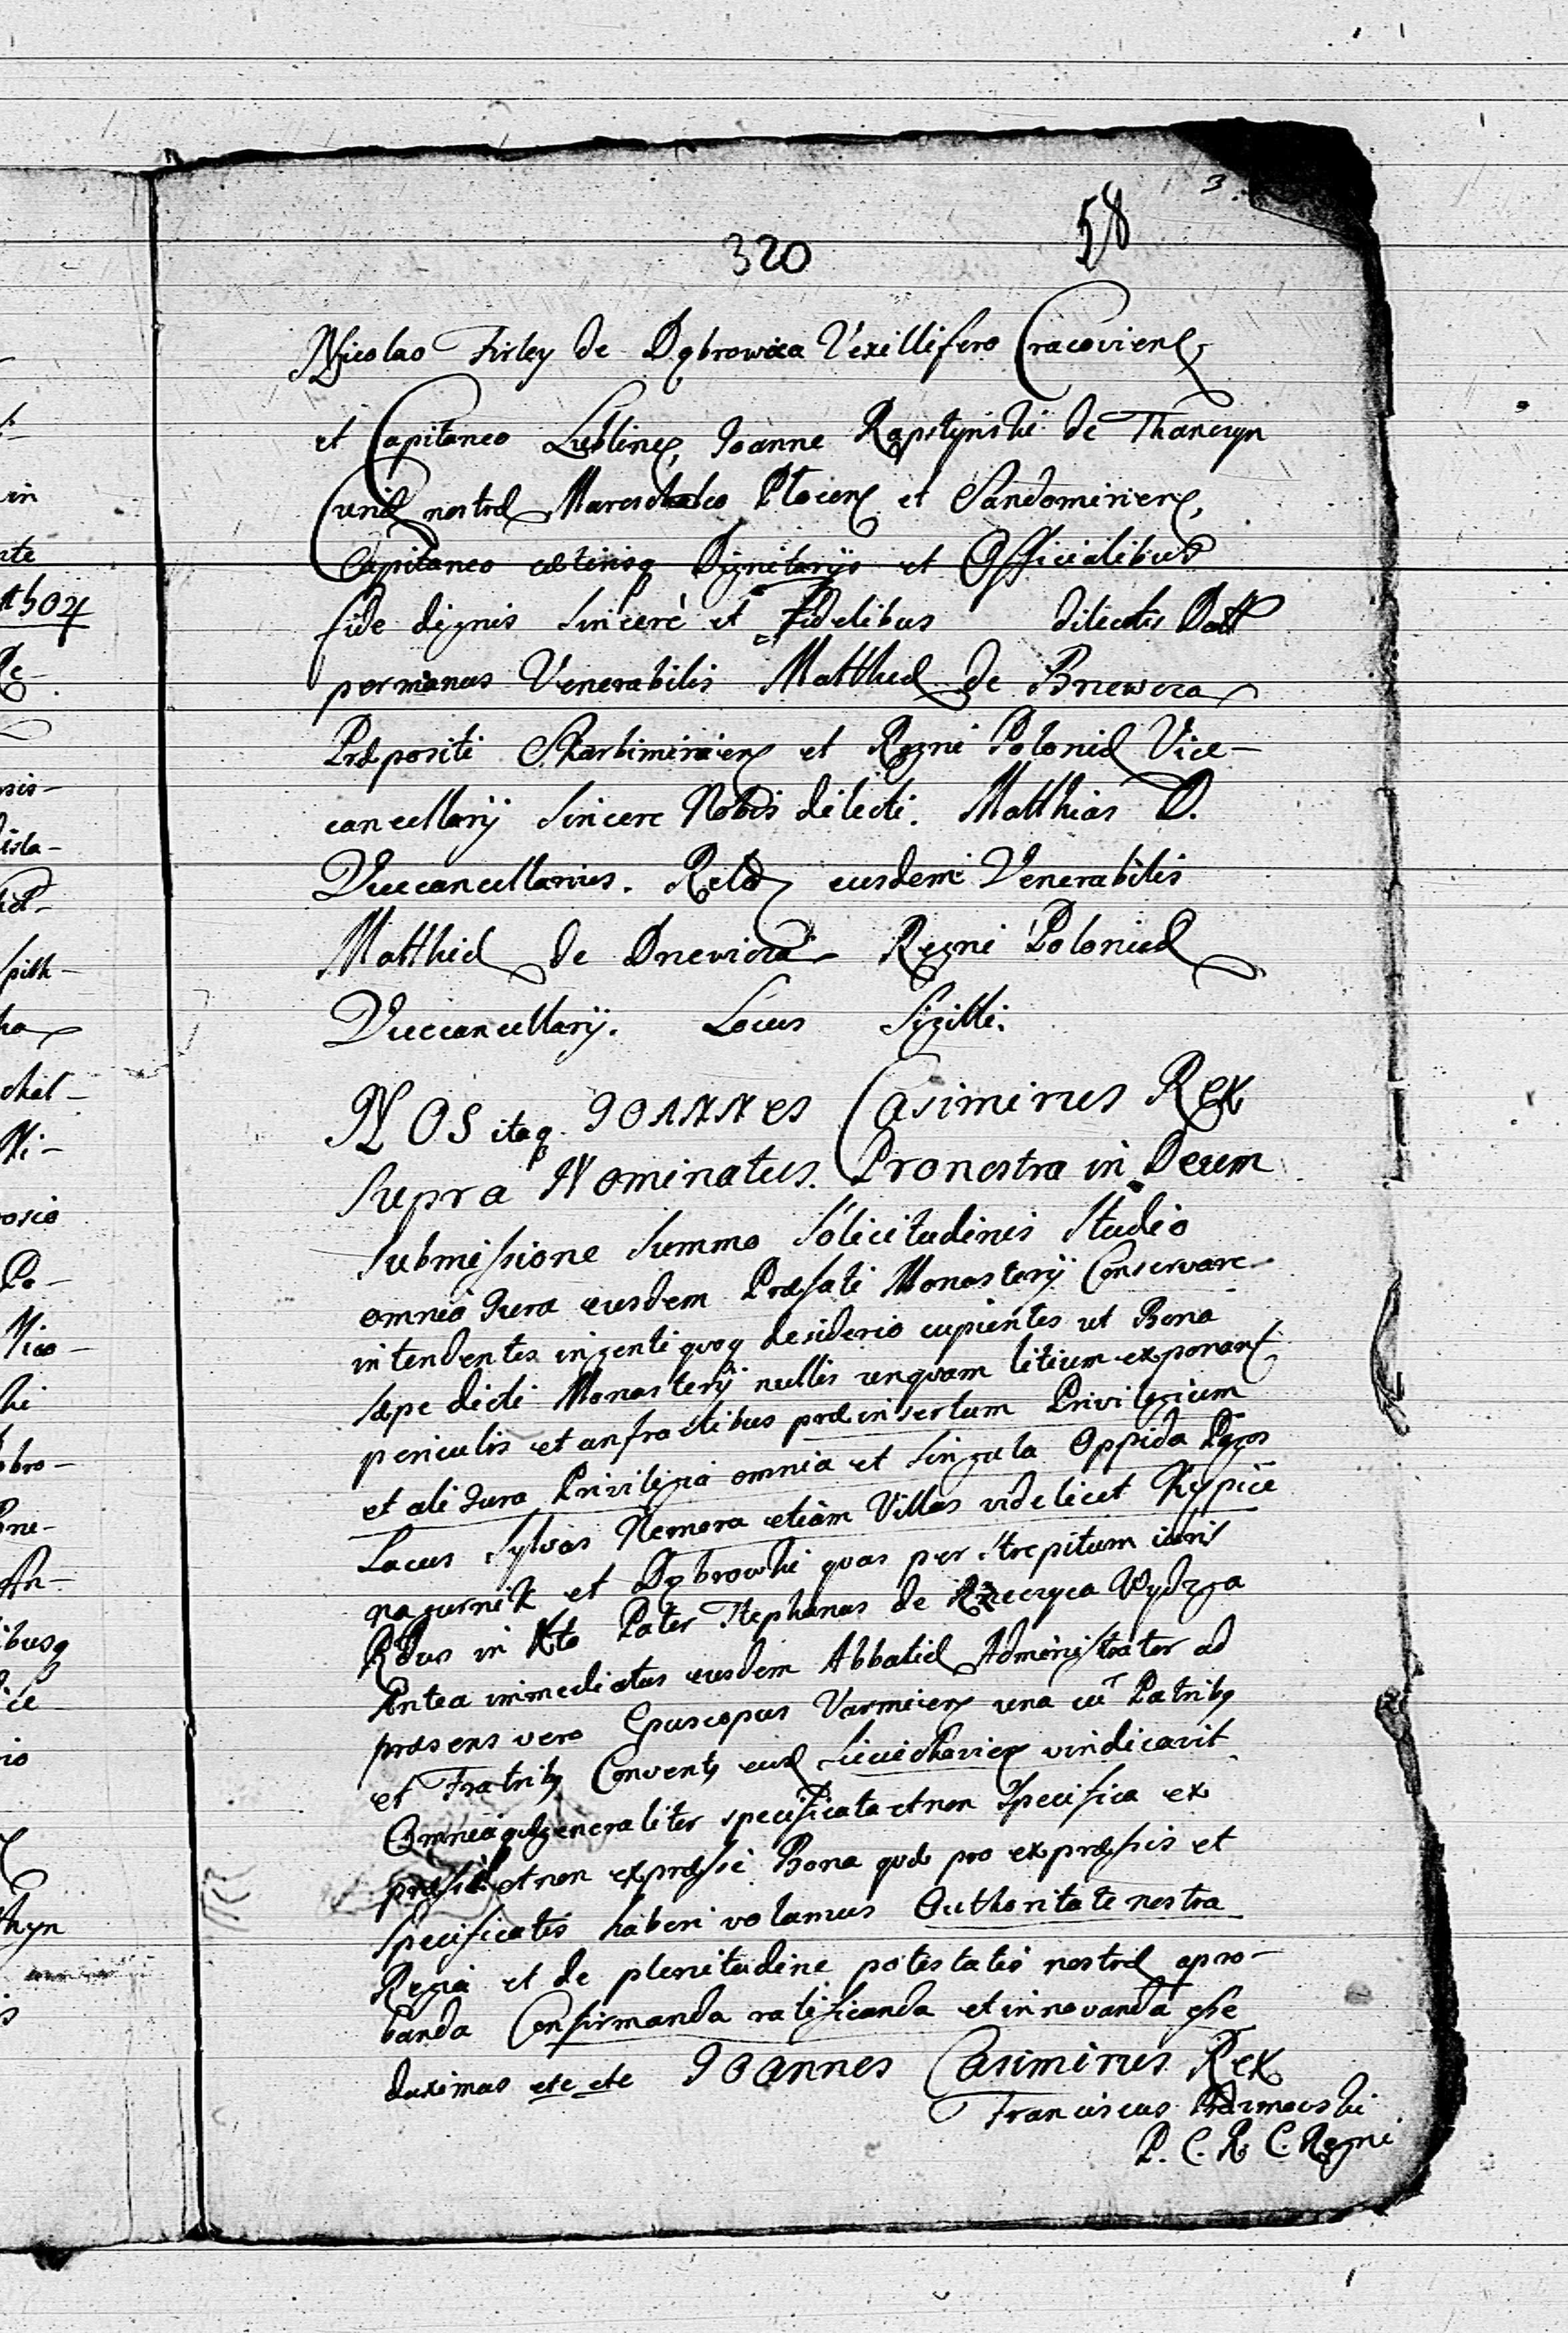 3.
58
320
Nicolao Firley de Dąbrowica Vexillifero Cracovien
et Capitaneo Lublinen, Joanne Rapsztynski de Thanczyn
Curiæ nostræ Mareschalco Plocen et Sandomirien,
Capitaneo cæterisq Dignitarijs et Officialibus
fide dignis sincerè et Fidelibus dilectis Datt
per manus Venerabilis Matthiæ de Brewica
Præpositi Skarbimirien et Regni Poloniæ Vice-
cancellarij sincere Nobis dilecti. Matthias D.
Vicecancellarius. Relõ eiusdem Venerabilis
Matthiæ de Drevicza Regni Poloniæ
Vicecancellarij. Locus Sigilli.
NOS itaq JOANNES Casimirus Rex
supra Nominatus. Pro nostra in Deum
submissione summo solicitudinis studio
omnia Jura eiusdem Præfati Monasterij Conservare
intendentes ingenti quoq desiderio cupientes ut Bona
sæpe dicti Monasterij nullis unquam litium exponant
periculis et anfractibus præinsertum Privilegium
et alė Jura Privilegia omnia et singula Oppida Pagos
Lacus Sylvas Nemora etiam Villas videlicet
nagurnik et Dąbrowki quas per strepitum iuris
Rdus in Xto Pater Stephanus de Rzeczyca Wydzga
Antea immediatus eiusdem Abbatiæ Administrator ad
præsens vero Episcopus Varmien una cũ Patribq
et Fratribq Convents eiusd Sieciechovien vindicavit
Omnia generaliter specificata et non specifica ex
præssa et non expræssa Bona quæ pro expræssis et
specificatis haberi volumus Authoritate nostra
Regia et de plenitudine potestatis nostræ apro-
banda Confirmanda ratificanda et innovanda esse
duximus etc etc Joannes Casimirus Rex
Franciscus Prazmowski
P. C. R. C. Regni